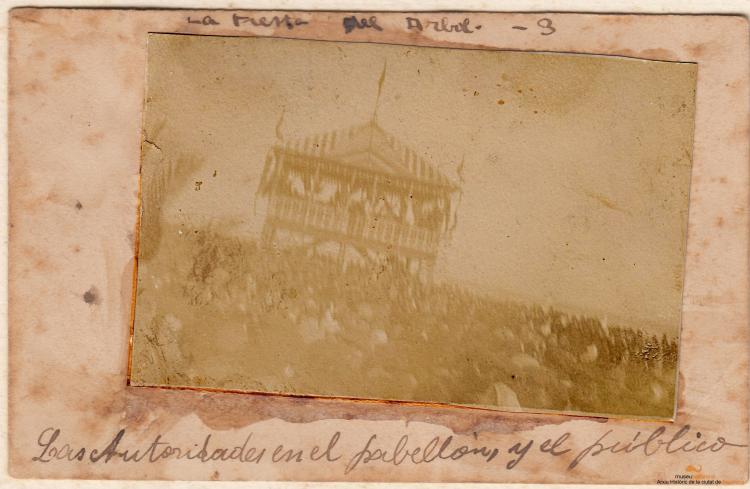 La Fiesta del Arbol. - 3
Las Autoridades en el pabellón, y el público
museu
Arxiu Històric de la ciutat de